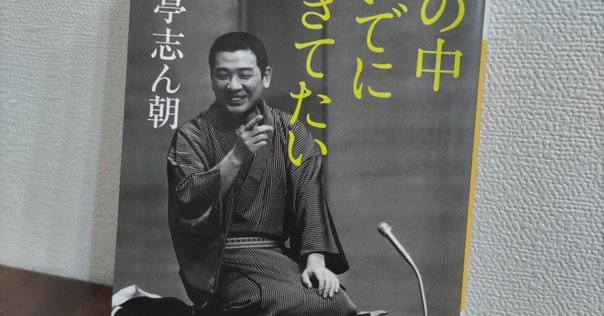 の中
いでに
きてたい
亭志ん朝